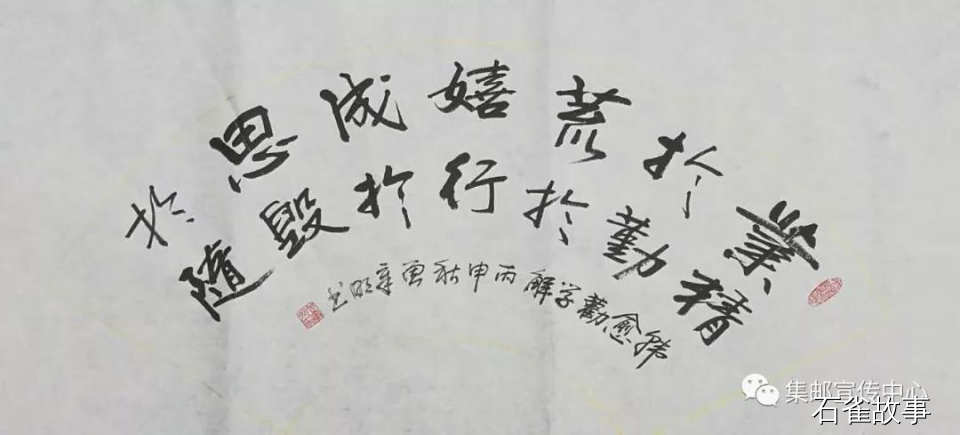 業精於勤荒於嬉行成於思毀於隨
韩愈勸学解丙申秋书
集邮宣传中心
石雀故事